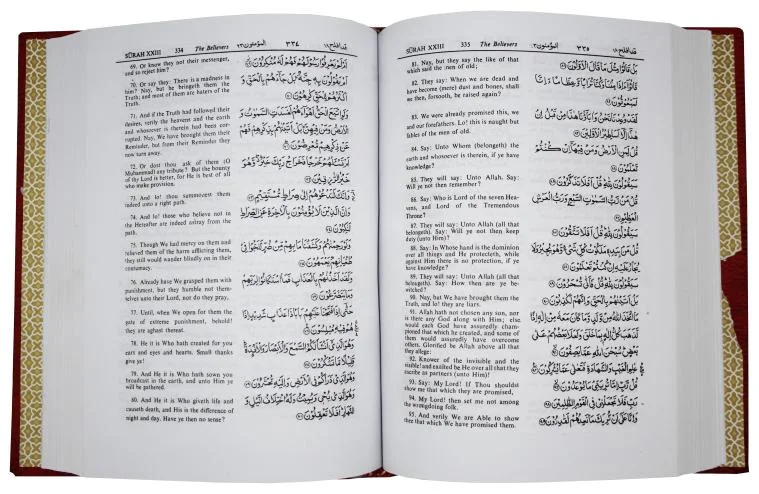 SÛRAH XXIII 334 The Believers المؤمنون ٢٣ ٣٣٤ قد افلح ١٨
69. Or know they not their messenger,
and so reject him?
70. Or say they: There is a madness in
him? Nay, but he bringeth them the
Truth; and most of them are haters of the
Truth.
71. And if the Truth had followed their
desires, verily the heavens and the earth
and whosoever is therein had been cor-
rupted. Nay, We have brought them their
Reminder, but from their Reminder they
now turn away.
72. Or dost thou ask of them (O
Muhammad) any tribute? But the bounty
of thy Lord is better, for He is best of all
who make provision.
73. And lo! thou summonest them
indeed unto a right path.
74. And lo! those who believe not in
the Hereafter are indeed astray from the
path.
75. Though We had mercy on them and
relieved them of the harm afflicting them,
they still would wander blindly on in their
contumacy.
76. Already have We grasped them with
punishment, but they humble not them-
selves unto their Lord, nor do they pray,
77. Until, when We open for them the
gate of extreme punishment, behold!
they are aghast thereat.
78. He it is Who hath created for you
ears and eyes and hearts. Small thanks
give ye!
79. And He it is Who hath sown you
broadcast in the earth, and unto Him ye
will be gathered.
80. And He it is Who giveth life and
causeth death, and His is the difference of
night and day. Have ye then no sense?
اَمْ لَمْ يَعْرِفُوْا رَسُوْلَهُمْ فَهُمْ لَهٗ مُنْكِرُوْنَ ۝٦٩
اَمْ يَقُوْلُوْنَ بِهٖ جِنَّةٌ بَلْ جَآءَهُمْ بِالْحَقِّ وَ
اَكْثَرُهُمْ لِلْحَقِّ كٰرِهُوْنَ ۝٧٠
وَلَوِ اتَّبَعَ الْحَقُّ اَهْوَآءَهُمْ لَفَسَدَتِ السَّمٰوٰتُ وَ
الْاَرْضُ وَمَنْ فِيْهِنَّ بَلْ اَتَيْنٰهُمْ بِذِكْرِهِمْ فَهُمْ
عَنْ ذِكْرِهِمْ مُّعْرِضُوْنَ ۝٧١
اَمْ تَسْئَلُهُمْ خَرْجًا فَخَرَاجُ رَبِّكَ خَيْرٌ وَّهُوَ
خَيْرُ الرّٰزِقِيْنَ ۝٧٢
وَاِنَّكَ لَتَدْعُوْهُمْ اِلٰى صِرَاطٍ مُّسْتَقِيْمٍ ۝٧٣
وَاِنَّ الَّذِيْنَ لَا يُؤْمِنُوْنَ بِالْاٰخِرَةِ عَنِ الصِّرَاطِ
لَنٰكِبُوْنَ ۝٧٤
وَلَوْ رَحِمْنٰهُمْ وَكَشَفْنَا مَا بِهِمْ مِّنْ ضُرٍّ لَّلَجُّوْا فِيْ
طُغْيَانِهِمْ يَعْمَهُوْنَ ۝٧٥
وَلَقَدْ اَخَذْنٰهُمْ بِالْعَذَابِ فَمَا اسْتَكَانُوْا لِرَبِّهِمْ
وَمَا يَتَضَرَّعُوْنَ ۝٧٦
حَتّٰى اِذَا فَتَحْنَا عَلَيْهِمْ بَابًا ذَا عَذَابٍ شَدِيْدٍ اِذَا
هُمْ فِيْهِ مُبْلِسُوْنَ ۝٧٧
وَهُوَ الَّذِيْ اَنْشَاَ لَكُمُ السَّمْعَ وَالْاَبْصَارَ وَالْاَفْئِدَةَ
قَلِيْلًا مَّا تَشْكُرُوْنَ ۝٧٨
وَهُوَ الَّذِيْ ذَرَاَكُمْ فِي الْاَرْضِ وَاِلَيْهِ تُحْشَرُوْنَ ۝٧٩
وَهُوَ الَّذِيْ يُحْيٖ وَيُمِيْتُ وَلَهُ اخْتِلَافُ الَّيْلِ وَ
النَّهَارِ اَفَلَا تَعْقِلُوْنَ ۝٨٠
SÛRAH XXIII 335 The Believers المؤمنون ٢٣ ٣٣٥ قد افلح ١٨
81. Nay, but they say the like of that
which said the men of old;
82. They say: When we are dead and
have become (mere) dust and bones, shall
we then, forsooth, be raised again?
83. We were already promised this, we
and our forefathers. Lo! this is naught but
fables of the men of old.
84. Say: Unto Whom (belongeth) the
earth and whosoever is therein, if ye have
knowledge?
85. They will say: Unto Allah. Say:
Will ye not then remember?
86. Say: Who is Lord of the seven Hea-
vens, and Lord of the Tremendous
Throne?
87. They will say: Unto Allah (all that
belongeth). Say: Will ye not then keep
duty (unto Him)?
88. Say: In Whose hand is the dominion
over all things and He protecteth, while
against Him there is no protection, if ye
have knowledge?
89. They will say: Unto Allah (all that
belongeth). Say: How then are ye be-
witched?
90. Nay, but We have brought them the
Truth, and lo! they are liars.
91. Allah hath not chosen any son, nor
is there any God along with Him; else
would each God have assuredly cham-
pioned that which he created, and some of
them would assuredly have overcome
others. Glorified be Allah above all that
they allege:
92. Knower of the invisible and the
visible! and exalted be He over all that they
ascribe as partners (unto Him)!
93. Say: My Lord! If Thou shouldst
show me that which they are promised,
94. My Lord! then set me not among
the wrongdoing folk.
95. And verily We are Able to show
thee that which We have promised them.
بَلْ قَالُوْا مِثْلَ مَا قَالَ الْاَوَّلُوْنَ ۝٨١
قَالُوْٓا ءَاِذَا مِتْنَا وَكُنَّا تُرَابًا وَّعِظَامًا ءَاِنَّا
لَمَبْعُوْثُوْنَ ۝٨٢
لَقَدْ وُعِدْنَا نَحْنُ وَاٰبَآؤُنَا هٰذَا مِنْ قَبْلُ اِنْ
هٰذَآ اِلَّآ اَسَاطِيْرُ الْاَوَّلِيْنَ ۝٨٣
قُلْ لِّمَنِ الْاَرْضُ وَمَنْ فِيْهَآ اِنْ كُنْتُمْ
تَعْلَمُوْنَ ۝٨٤
سَيَقُوْلُوْنَ لِلّٰهِ قُلْ اَفَلَا تَذَكَّرُوْنَ ۝٨٥
قُلْ مَنْ رَّبُّ السَّمٰوٰتِ السَّبْعِ وَرَبُّ الْعَرْشِ
الْعَظِيْمِ ۝٨٦
سَيَقُوْلُوْنَ لِلّٰهِ قُلْ اَفَلَا تَتَّقُوْنَ ۝٨٧
قُلْ مَنْ بِيَدِهٖ مَلَكُوْتُ كُلِّ شَيْءٍ وَّهُوَ يُجِيْرُ وَلَا
يُجَارُ عَلَيْهِ اِنْ كُنْتُمْ تَعْلَمُوْنَ ۝٨٨
سَيَقُوْلُوْنَ لِلّٰهِ قُلْ فَاَنّٰى تُسْحَرُوْنَ ۝٨٩
بَلْ اَتَيْنٰهُمْ بِالْحَقِّ وَاِنَّهُمْ لَكٰذِبُوْنَ ۝٩٠
مَا اتَّخَذَ اللّٰهُ مِنْ وَّلَدٍ وَّمَا كَانَ مَعَهٗ مِنْ اِلٰهٍ اِذًا
لَّذَهَبَ كُلُّ اِلٰهٍ بِمَا خَلَقَ وَلَعَلَا بَعْضُهُمْ عَلٰى
بَعْضٍ سُبْحٰنَ اللّٰهِ عَمَّا يَصِفُوْنَ ۝٩١
عٰلِمِ الْغَيْبِ وَالشَّهَادَةِ فَتَعٰلٰى عَمَّا يُشْرِكُوْنَ ۝٩٢
قُلْ رَّبِّ اِمَّا تُرِيَنِّيْ مَا يُوْعَدُوْنَ ۝٩٣
رَبِّ فَلَا تَجْعَلْنِيْ فِي الْقَوْمِ الظّٰلِمِيْنَ ۝٩٤
وَاِنَّا عَلٰٓى اَنْ نُّرِيَكَ مَا نَعِدُهُمْ لَقٰدِرُوْنَ ۝٩٥